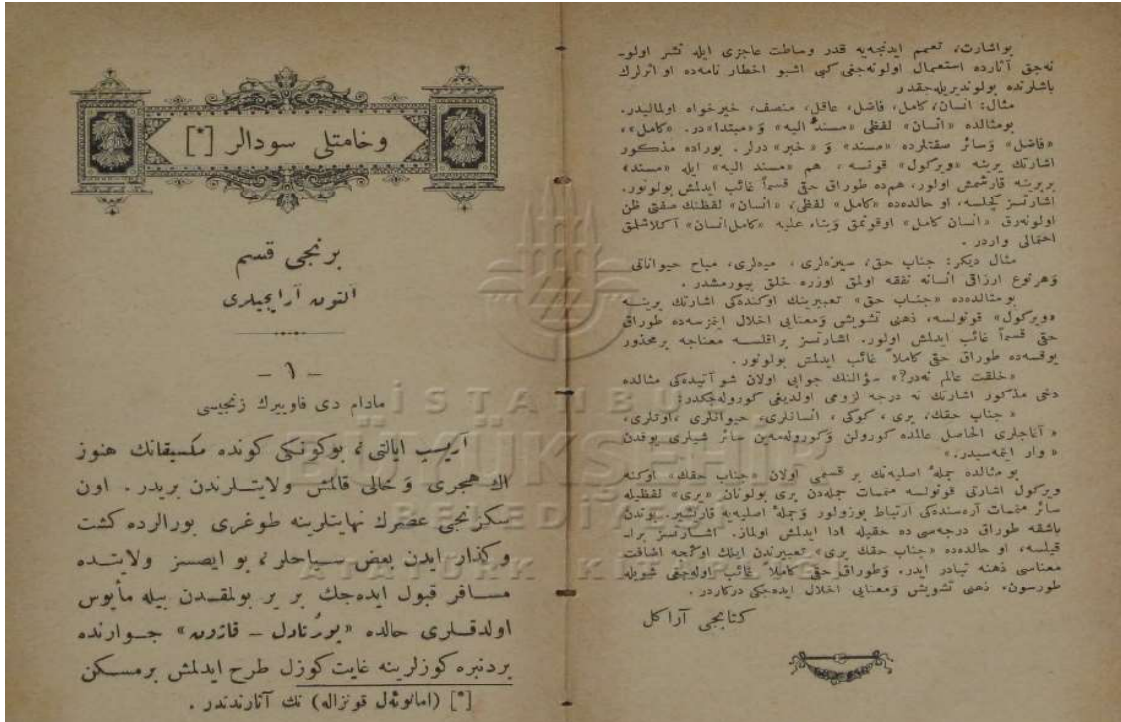 بواشارت، تعمم ایدنجه‌یه قدر وساطت عاجزی ایله نشر اولو-
نه‌جق آثارده استعمال اولونه‌جغی کبی اشبو اخطار نامه‌ده او اثرلرك
باشلرنده بولوندیریله‌جقدر
مثال: انسان، کامل، فاضل، عاقل، منصف، خیرخواه اولمالیدر.
بومثالده «انسان» لفظی «مسند الیه» وَ «مبتدا» در. «کامل»،
«فاضل» وَسائر صفتلرده «مسند» وَ «خبر» درلر. بوراده مذکور
اشارتك یرینه «ویرکول» قونسه، هم «مسند الیه» ایله «مسند»
بربرینه قارشمش اولور، هم‌ده طوراق حقی قسماً غائب ایدلمش بولونور.
اشارتسز کچلسه، او حالده‌ده «کامل» لفظی، «انسان» لفظنك صفتی ظن
اولونه‌رق «انسان کامل» اوقونمق وَبناء علیه «کامل انسان» آکلاشلمق
احتمالی واردر.
مثال دیکر: جناب حق، سبزه‌لری، میوه‌لری، مباح حیواناتی
وَهرنوع ارزاقی انسانه نفقه اولمق اوزره خلق بیورمشدر.
بو مثالده‌ده «جناب حق» تعبیرینك اوکنده‌کی اشارتك یرینه
«ویرکول» قونولسه، ذهنی تشویش وَمعنایی اخلال ایتمزسه‌ده طوراق
حقی قسماً غائب ایدلمش اولور. اشارتسز براقلسه معناجه برمحذور
یوقسه‌ده طوراق حقی کاملاً غائب ایدلمش بولونور.
«خلقت عالم نه‌در؟» سؤالنك جوابی اولان شو آتیده‌کی مثالده
دخی مذکور اشارتك نه درجه لزومی اولدیغی کوروله‌جکدر:
« جناب حقك، یری، کوکی، انسانلری، حیوانلری، اوتلری،
« آغاجلری الحاصل عالمده کورولن وَکورولمه‌ین سائر شیلری یوقدن
« وار ایتمه‌سیدر.»
بو مثالده جملهٔ اصلیه‌نك بر قسمی اولان «جناب حقك» اوکنه
ویرکول اشارتی قونولسه متممات جمله‌دن بری بولونان «یری» لفظیله
سائر متممات آره‌سنده‌کی ارتباط بوزولور وَجملهٔ اصلیه‌یه قاریشیر. بوندن
باشقه طوراق درجه‌سی ده حقیله ادا ایدلمش اولماز. اشارتسز برا-
قیلسه، او حالده‌ده «جناب حقك یری» تعبیرندن ایلك اوکجه اضافت
معناسی ذهنه تبادر ایدر. وَطوراق حقی کاملاً غائب اوله‌جغی شویله
طورسون. ذهنی تشویش وَمعنایی اخلال ایده‌جکی درکاردر.
کتابجی آراکل
وخامتلی سودالر [*]
برنجی قسم
آلتون آرایجیلری
– ١ –
مادام دی فاوییرك زنجیسی
آریسب ایالتی، بوکونکی کونده مکسیقانك هنوز
اك هجری وَ خالی قالمش ولایتلرندن بریدر. اون
سکزنجی عصرك نهایتلرینه طوغری بورالرده کشت
وکذار ایدن بعض سیاحلر، بو ایصسز ولایتده
مسافر قبول ایده‌جك بر یر بولمقدن بیله مأیوس
اولدقلری حالده «بورُنادل – قاژدن» جوارنده
بردنبره کوزلرینه غایت کوزل طرح ایدلمش برمسکن
[*] (امانوئل قونزاله) نك آثارندندر.
İSTANBUL
BÜYÜKŞEHİR
BELEDİYESİ
ATATÜRK KİTAPLIĞI